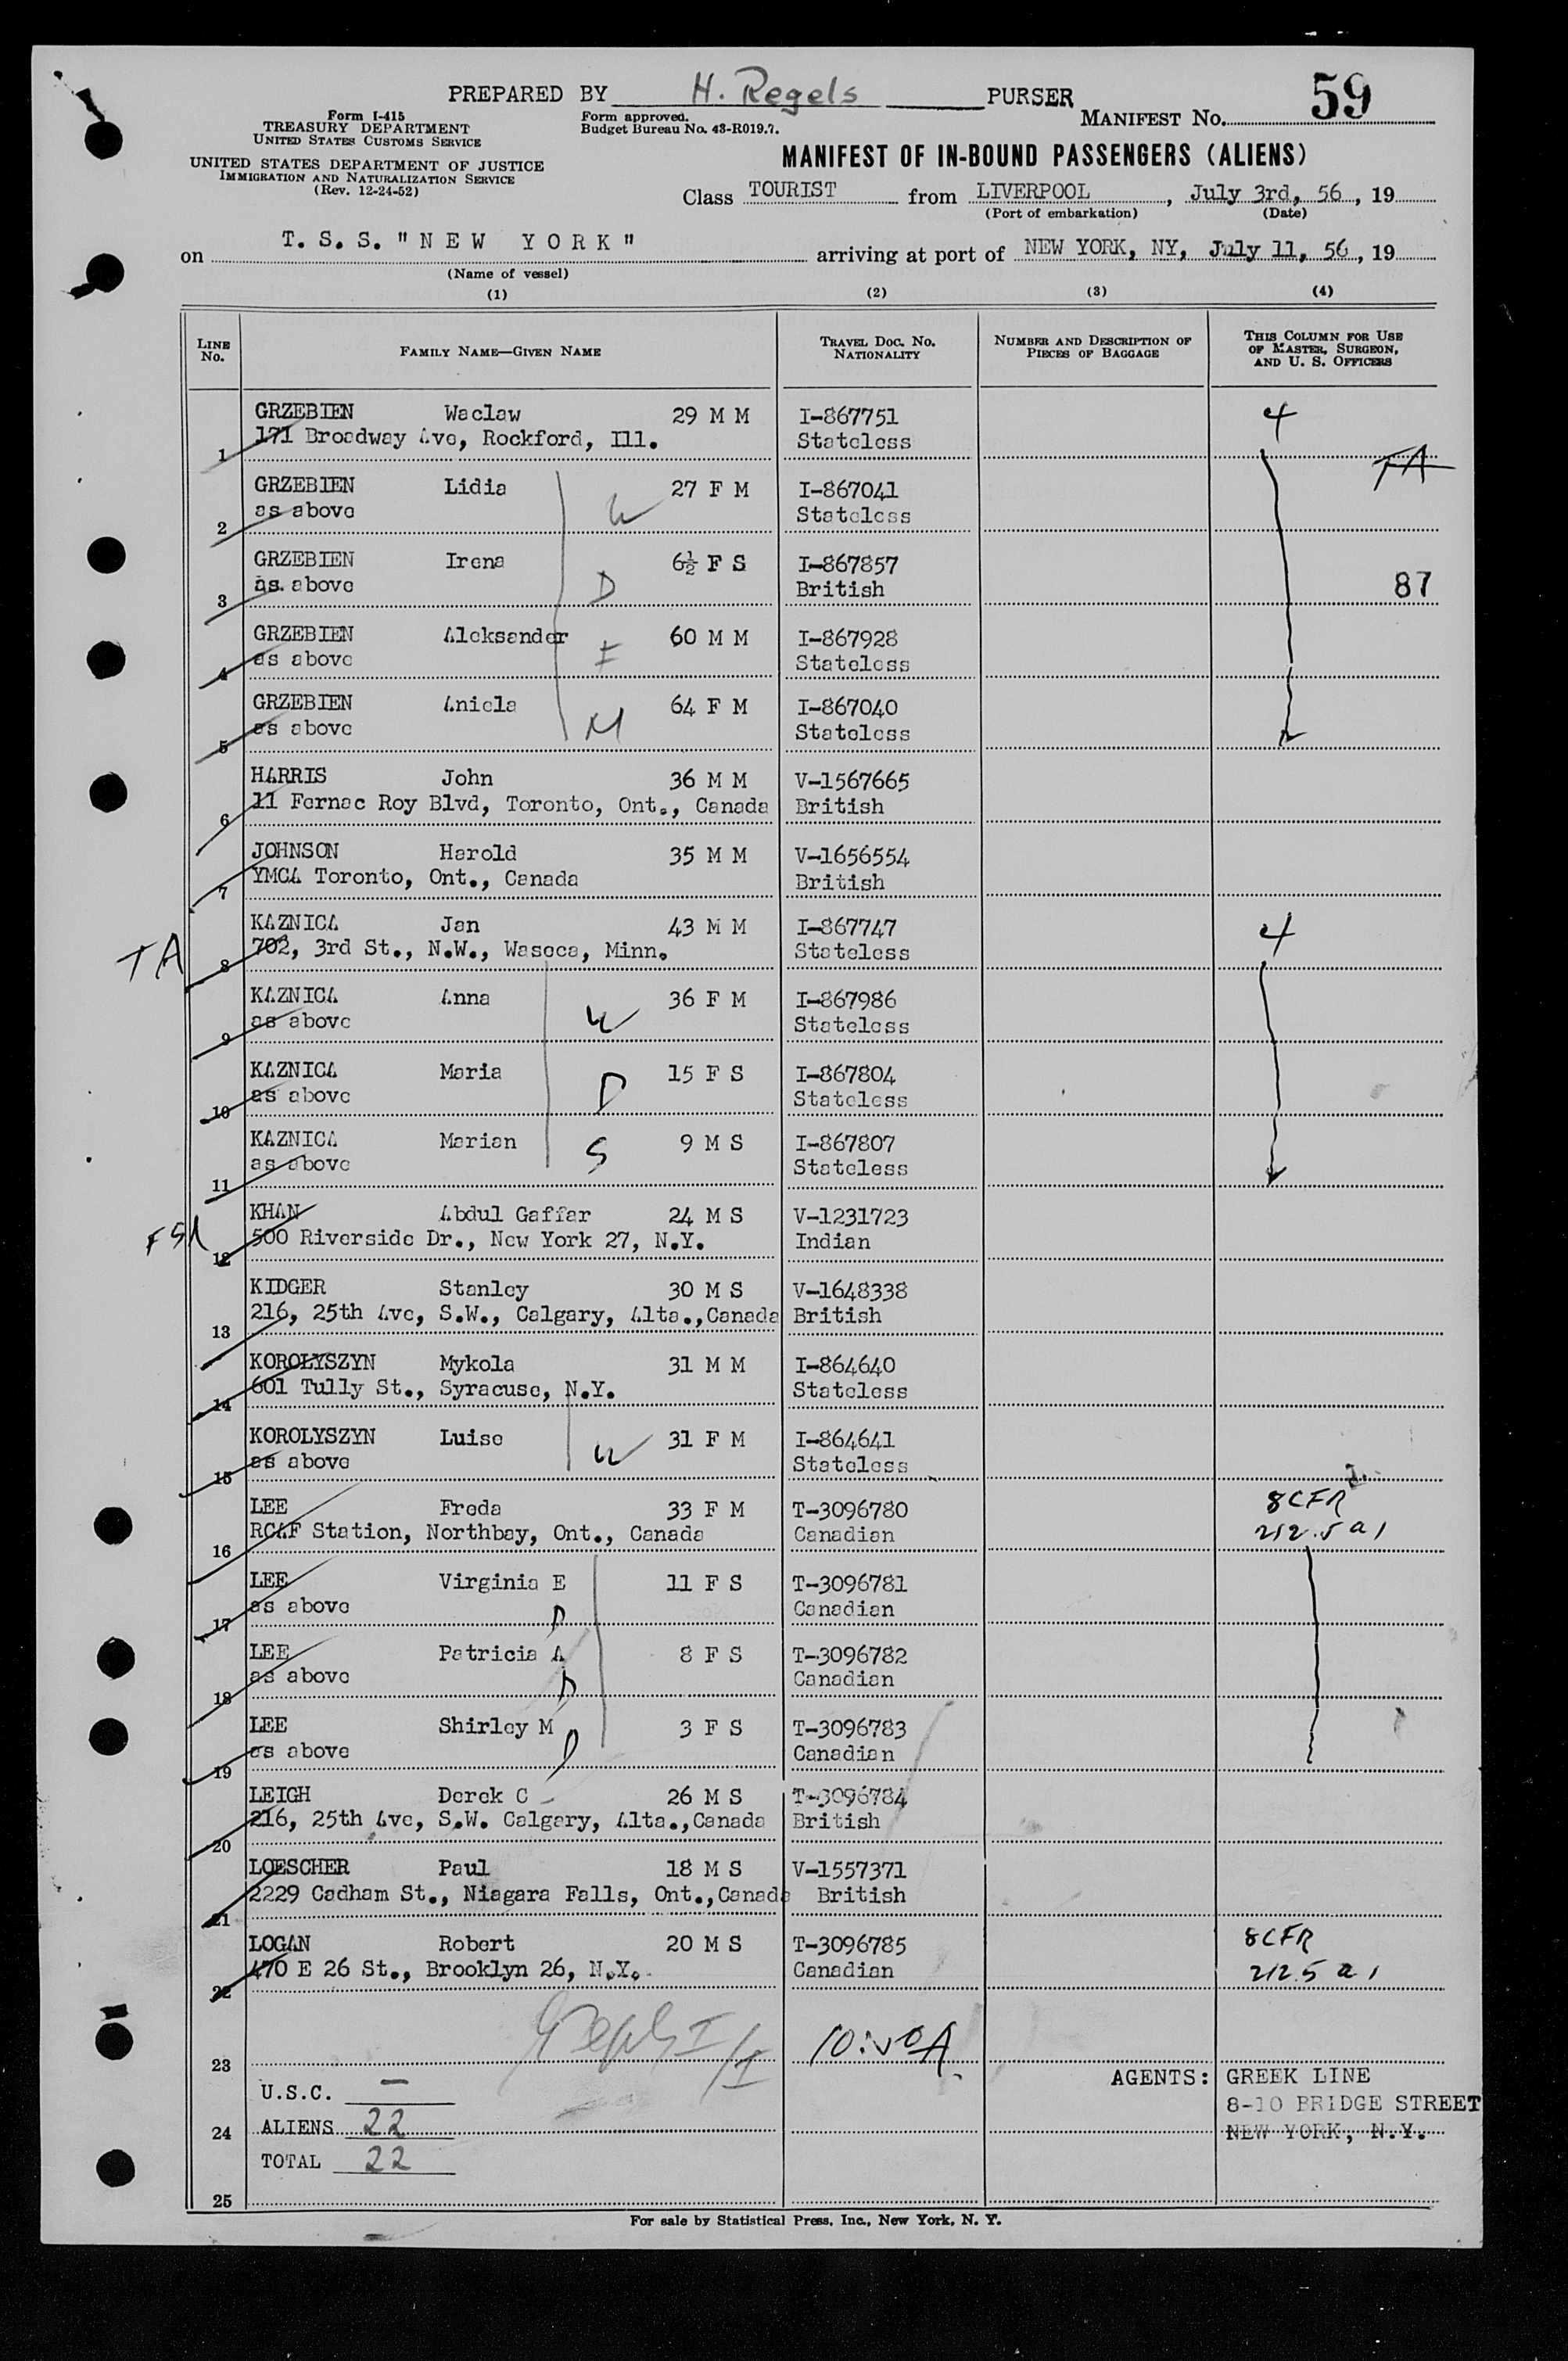 PREPARED BY H. Regels PURSER
59
Form I-415
TREASURY DEPARTMENT
UNITED STATES CUSTOMS SERVICE
Form approved.
Budget Bureau No. 43-R019.7.
MANIFEST NO.
UNITED STATES DEPARTMENT OF JUSTICE
IMMIGRATION AND NATURALIZATION SERVICE
(Rev. 12-24-52)
MANIFEST OF IN-BOUND PASSENGERS (ALIENS)
Class TOURIST from LIVERPOOL, July 3rd, 56, 19
(Port of embarkation) (Date)
on T. S. S. "NEW YORK" arriving at port of NEW YORK, NY, July 11, 56, 19
(Name of vessel)
(1) (2) (3) (4)
LINE No. FAMILY NAME—GIVEN NAME TRAVEL DOC. NO. NATIONALITY NUMBER AND DESCRIPTION OF PIECES OF BAGGAGE THIS COLUMN FOR USE OF MASTER, SURGEON, AND U. S. OFFICERS
GRZEBIEN Waclaw 29 M M I-867751 4
1 171 Broadway Ave, Rockford, Ill. Stateless
TA
GRZEBIEN Lidia 27 F M I-867041
2 as above W Stateless
GRZEBIEN Irena 6½ F S I-867857
3 as above D British 87
GRZEBIEN Aleksander 60 M M I-867928
4 as above F Stateless
GRZEBIEN Aniela 64 F M I-867040
5 as above M Stateless
HARRIS John 36 M M V-1567665
6 11 Fernac Roy Blvd, Toronto, Ont., Canada British
JOHNSON Harold 35 M M V-1656554
7 YMCA Toronto, Ont., Canada British
KAZNICA Jan 43 M M I-867747 4
TA 8 702, 3rd St., N.W., Waseca, Minn. Stateless
KAZNICA Anna 36 F M I-867986
9 as above W Stateless
KAZNICA Maria 15 F S I-867804
10 as above D Stateless
KAZNICA Marian 9 M S I-867807
11 as above S Stateless
KHAN Abdul Gaffar 24 M S V-1231723
12 500 Riverside Dr., New York 27, N.Y. Indian
KIDGER Stanley 30 M S V-1648338
13 216, 25th Ave, S.W., Calgary, Alta., Canada British
KOROLYSZYN Mykola 31 M M I-864640
14 601 Tully St., Syracuse, N.Y. Stateless
KOROLYSZYN Luise 31 F M I-864641
15 as above W Stateless
LEE Freda 33 F M T-3096780 8CFR
16 RCAF Station, Northbay, Ont., Canada Canadian 212.5 a 1
LEE Virginia E 11 F S T-3096781
17 as above D Canadian
LEE Patricia A 8 F S T-3096782
18 as above D Canadian
LEE Shirley M 3 F S T-3096783
19 as above D Canadian
LEIGH Derek C 26 M S T-3096784
20 216, 25th Ave, S.W. Calgary, Alta., Canada British
LOESCHER Paul 18 M S V-1557371
21 2229 Cadham St., Niagara Falls, Ont., Canada British
LOGAN Robert 20 M S T-3096785 8CFR
22 470 E 26 St., Brooklyn 26, N.Y. Canadian 212.5 a 1
23 10:50A
U.S.C. — AGENTS: GREEK LINE
8-10 BRIDGE STREET
24 ALIENS 22 NEW YORK, N.Y.
TOTAL 22
25
For sale by Statistical Press, Inc., New York, N. Y.